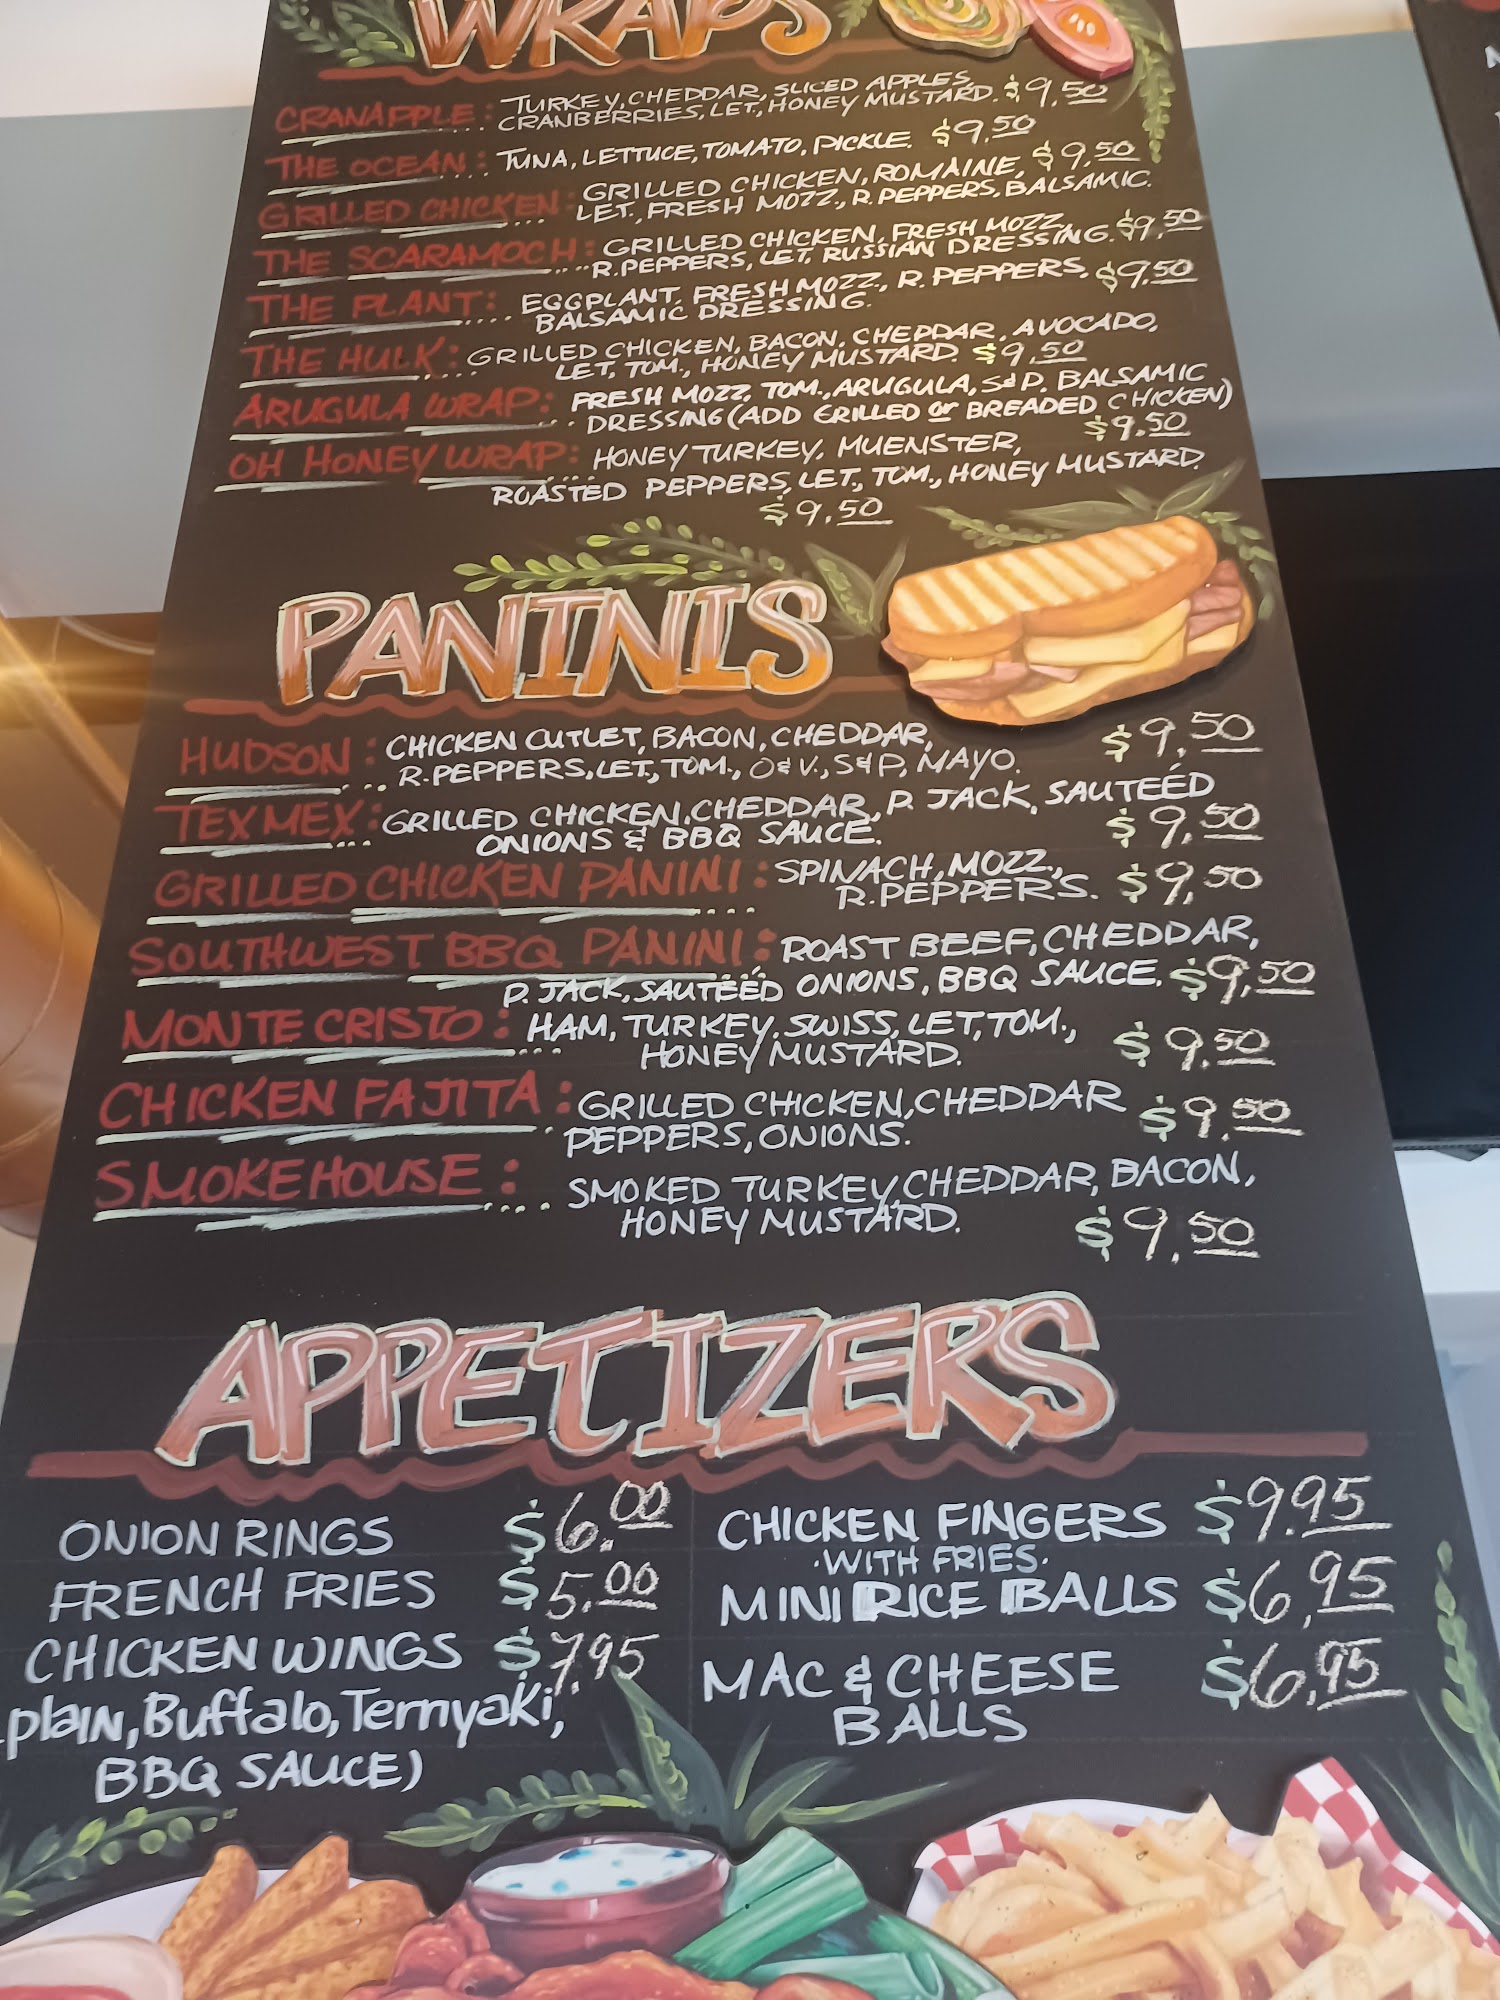 WRAPS
CRANAPPLE: TURKEY, CHEDDAR, SLICED APPLES,
CRANBERRIES, LET, HONEY MUSTARD. $9.50
THE OCEAN: TUNA, LETTUCE, TOMATO, PICKLE. $9.50
GRILLED CHICKEN: GRILLED CHICKEN, ROMAINE, $9.50
LET., FRESH MOZZ., R. PEPPERS, BALSAMIC.
THE SCARAMOCH: GRILLED CHICKEN, FRESH MOZZ,
R. PEPPERS, LET, RUSSIAN DRESSING. $9.50
THE PLANT: EGGPLANT, FRESH MOZZ., R. PEPPERS, $9.50
BALSAMIC DRESSING.
THE HULK: GRILLED CHICKEN, BACON, CHEDDAR, AVOCADO,
LET, TOM., HONEY MUSTARD. $9.50
ARUGULA WRAP: FRESH MOZZ, TOM., ARUGULA, S&P, BALSAMIC
DRESSING (ADD GRILLED or BREADED CHICKEN)
$9.50
OH HONEY WRAP: HONEY TURKEY, MUENSTER,
ROASTED PEPPERS, LET., TOM., HONEY MUSTARD.
$9.50
PANINIS
HUDSON: CHICKEN CUTLET, BACON, CHEDDAR, $9.50
R. PEPPERS, LET., TOM., O&V., S&P, MAYO.
TEXMEX: GRILLED CHICKEN, CHEDDAR, P. JACK, SAUTEÉD
ONIONS & BBQ SAUCE. $9.50
GRILLED CHICKEN PANINI: SPINACH, MOZZ.,
R. PEPPERS. $9.50
SOUTHWEST BBQ PANINI: ROAST BEEF, CHEDDAR,
P. JACK, SAUTEÉD ONIONS, BBQ SAUCE. $9.50
MONTE CRISTO: HAM, TURKEY, SWISS, LET, TOM.,
HONEY MUSTARD. $9.50
CHICKEN FAJITA: GRILLED CHICKEN, CHEDDAR $9.50
PEPPERS, ONIONS.
SMOKEHOUSE: SMOKED TURKEY, CHEDDAR, BACON,
HONEY MUSTARD. $9.50
APPETIZERS
ONION RINGS $6.00
FRENCH FRIES $5.00
CHICKEN WINGS $7.95
plaIN, Buffalo, Terriyaki,
BBQ SAUCE)
CHICKEN FINGERS $9.95
·WITH FRIES·
MINI RICE BALLS $6.95
MAC & CHEESE $6.95
BALLS